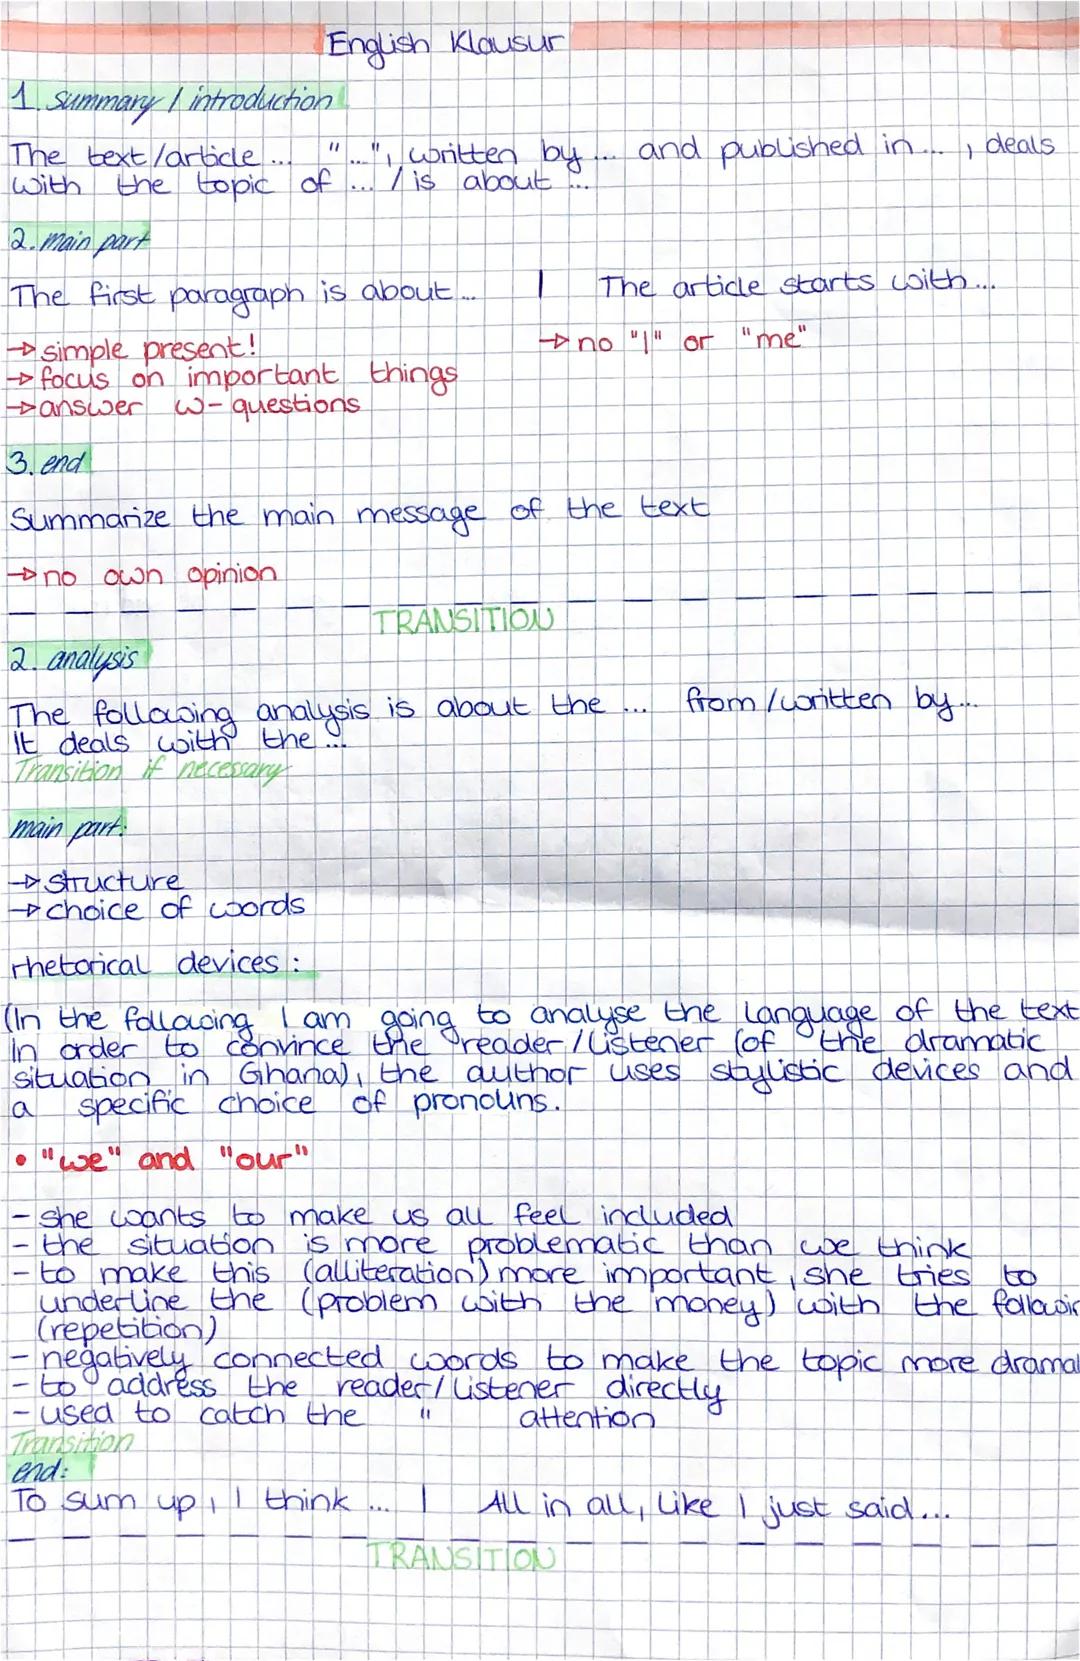 English Klausur
1. summary / introduction
The text/article... "...", written by... and published in..., deals
with the topic of ... / is about ...
2. main part
The first paragraph is about... | The article starts with...
→ simple present! → no "I" or "me"
→ focus on important things
→ answer w-questions
3. end
Summarize the main message of the text
→ no own opinion
TRANSITION
2. analysis
The following analysis is about the ... from/written by...
It deals with the...
Transition if necessary
main part:
→ structure
→ choice of words
rhetorical devices:
(In the following I am going to analyse the language of the text
In order to convince the reader/listener (of the dramatic
situation in Ghana), the author uses stylistic devices and
a specific choice of pronouns.
• "we" and "our"
- she wants to make us all feel included
- the situation is more problematic than we think
- to make this (alliteration) more important, she tries to
underline the (problem with the money) with the followin
(repetition)
- negatively connected words to make the topic more drama
- to address the reader/listener directly
- used to catch the " attention
Transition
end:
To sum up, I think ... | All in all, like I just said...
TRANSITION